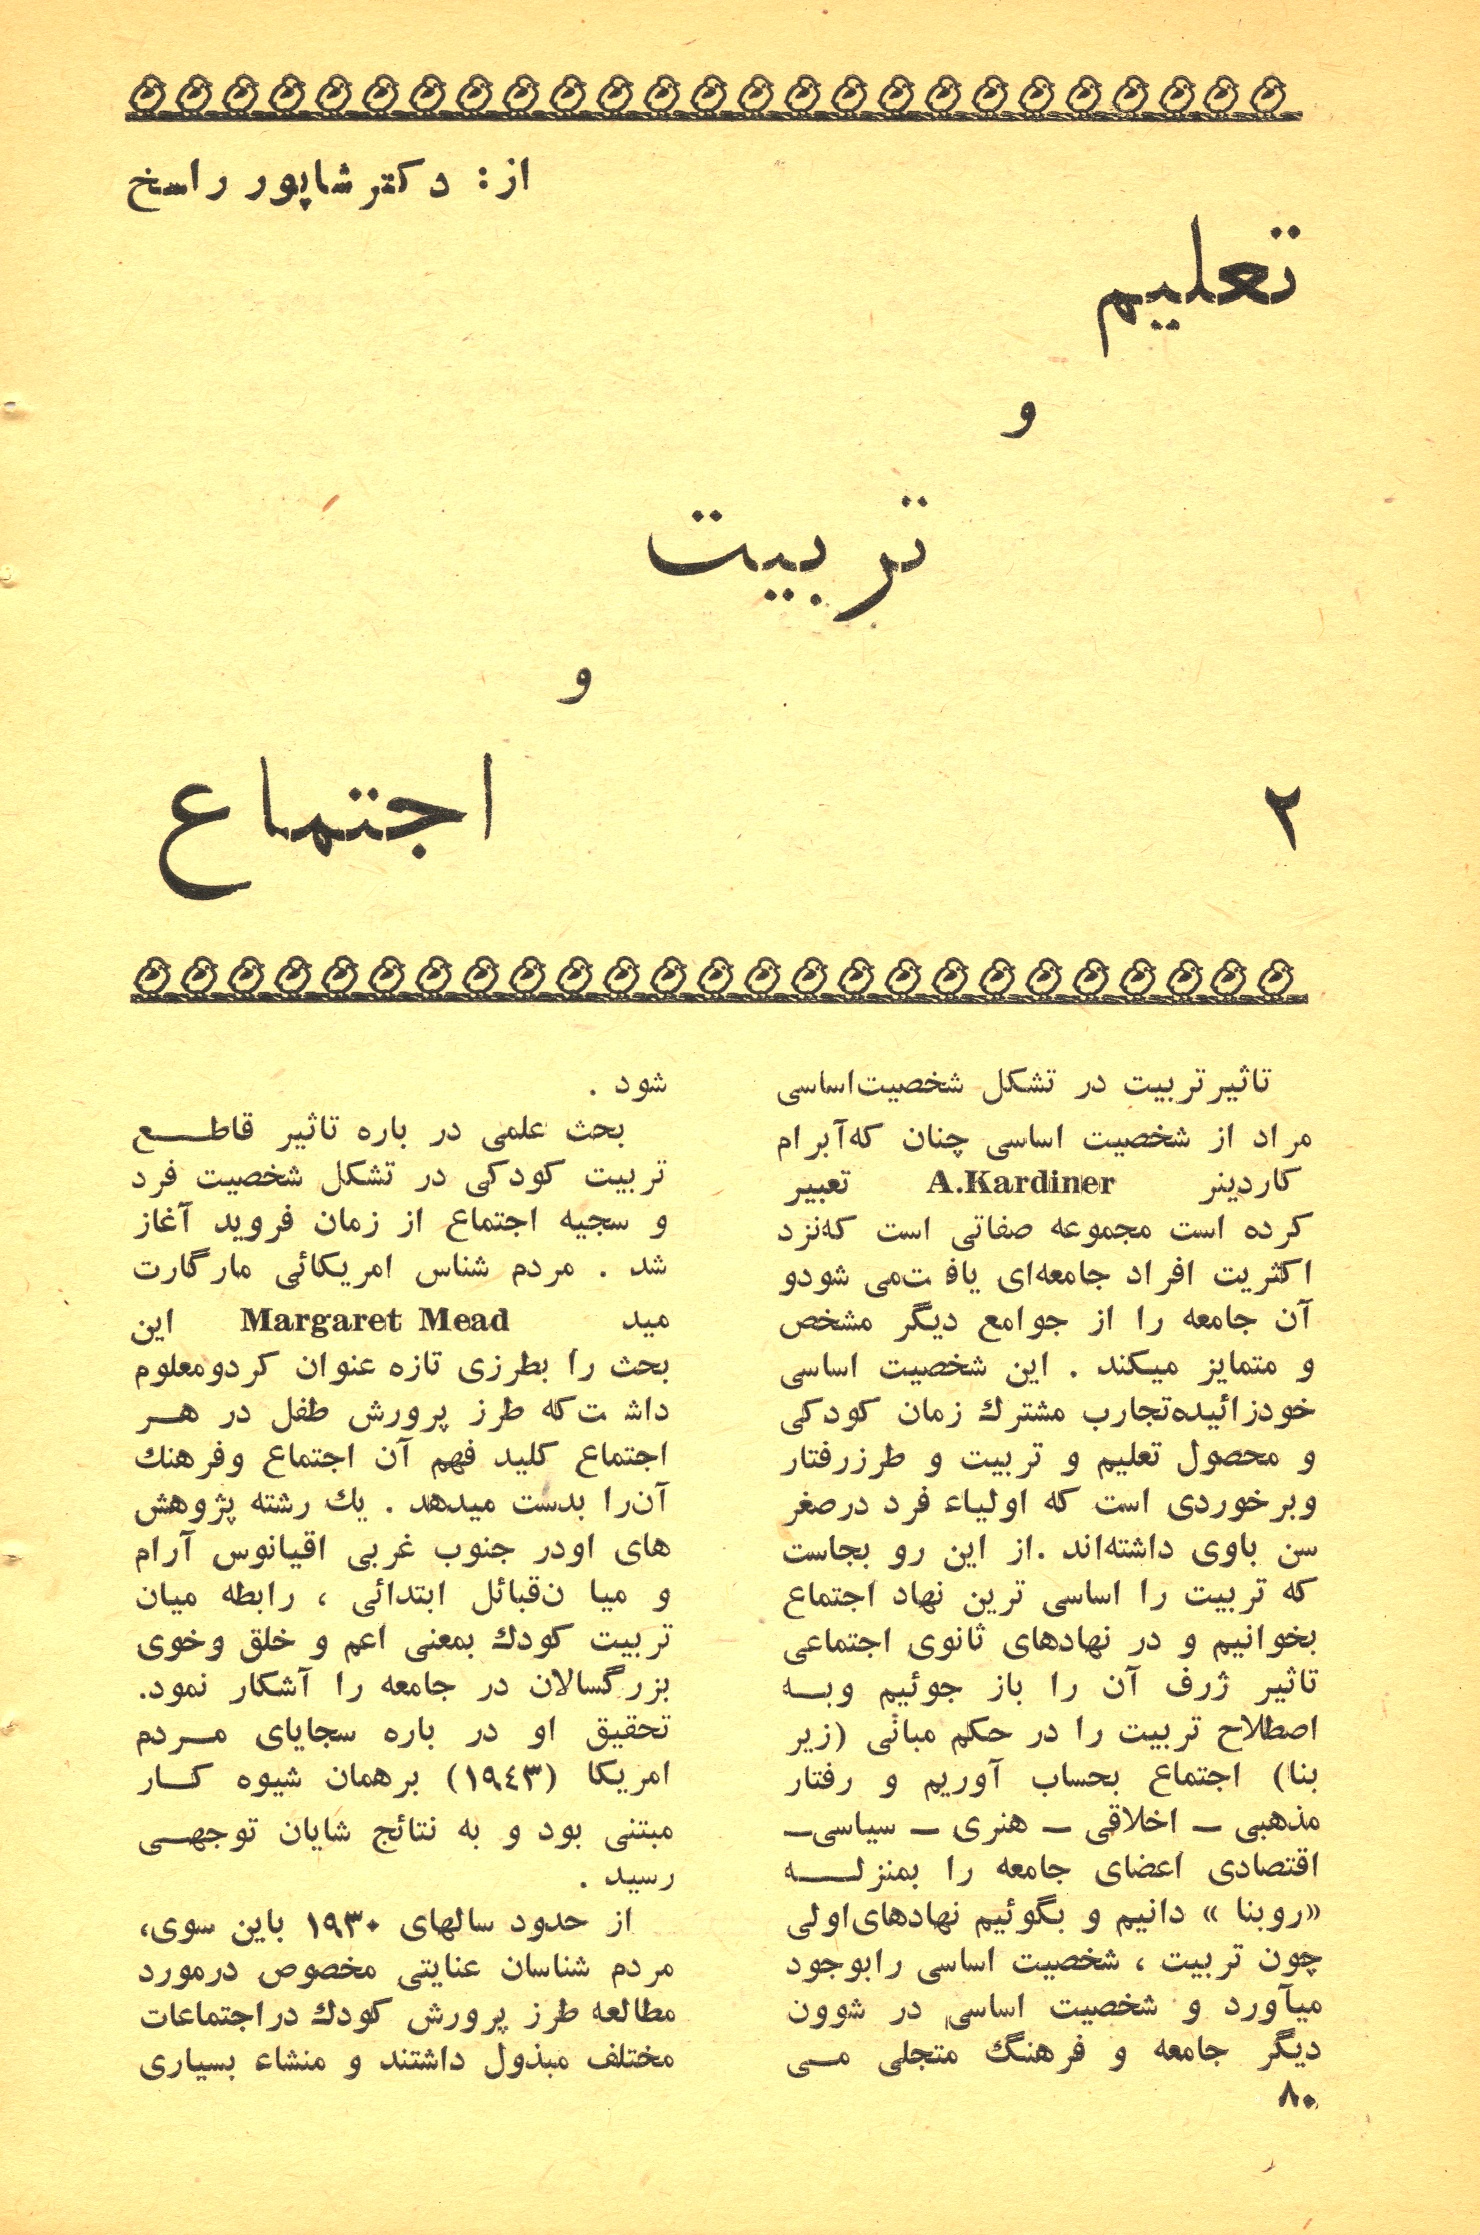 از: دکتر شاپور راسخ
تعلیم
و
تربیت
و
اجتماع
۲
تاثیر تربیت در تشکل شخصیت اساسی
مراد از شخصیت اساسی چنان که آبرام
کاردینر A.Kardiner تعبیر
کرده است مجموعه صفاتی است که نزد
اکثریت افراد جامعه‌ای یافت می شود و
آن جامعه را از جوامع دیگر مشخص
و متمایز میکند . این شخصیت اساسی
خود زائیده تجارب مشترك زمان کودکی
و محصول تعلیم و تربیت و طرز رفتار
و برخوردی است که اولیاء فرد در صغر
سن باوی داشته‌اند .از این رو بجاست
که تربیت را اساسی ترین نهاد اجتماع
بخوانیم و در نهادهای ثانوی اجتماعی
تاثیر ژرف آن را باز جوئیم و به
اصطلاح تربیت را در حکم مبانی (زیر
بنا) اجتماع بحساب آوریم و رفتار
مذهبی – اخلاقی – هنری – سیاسی–
اقتصادی اعضای جامعه را بمنزله
«روبنا » دانیم و بگوئیم نهادهای اولی
چون تربیت ، شخصیت اساسی را بوجود
میآورد و شخصیت اساسی در شوون
دیگر جامعه و فرهنگ متجلی می
شود .
بحث علمی در باره تاثیر قاطع
تربیت کودکی در تشکل شخصیت فرد
و سجیه اجتماع از زمان فروید آغاز
شد . مردم شناس امریکائی مارگارت
مید Margaret Mead این
بحث را بطرزی تازه عنوان کرد و معلوم
داشت که طرز پرورش طفل در هر
اجتماع کلید فهم آن اجتماع و فرهنك
آن را بدست میدهد . یك رشته پژوهش
های او در جنوب غربی اقیانوس آرام
و میان قبائل ابتدائی ، رابطه میان
تربیت کودك بمعنی اعم و خلق و خوی
بزرگسالان در جامعه را آشکار نمود.
تحقیق او در باره سجایای مردم
امریکا (۱۹٤۳) بر همان شیوه کار
مبتنی بود و به نتائج شایان توجهی
رسید .
از حدود سالهای ۱۹۳۰ باین سوی،
مردم شناسان عنایتی مخصوص در مورد
مطالعه طرز پرورش کودك در اجتماعات
مختلف مبذول داشتند و منشاء بسیاری
۸۰